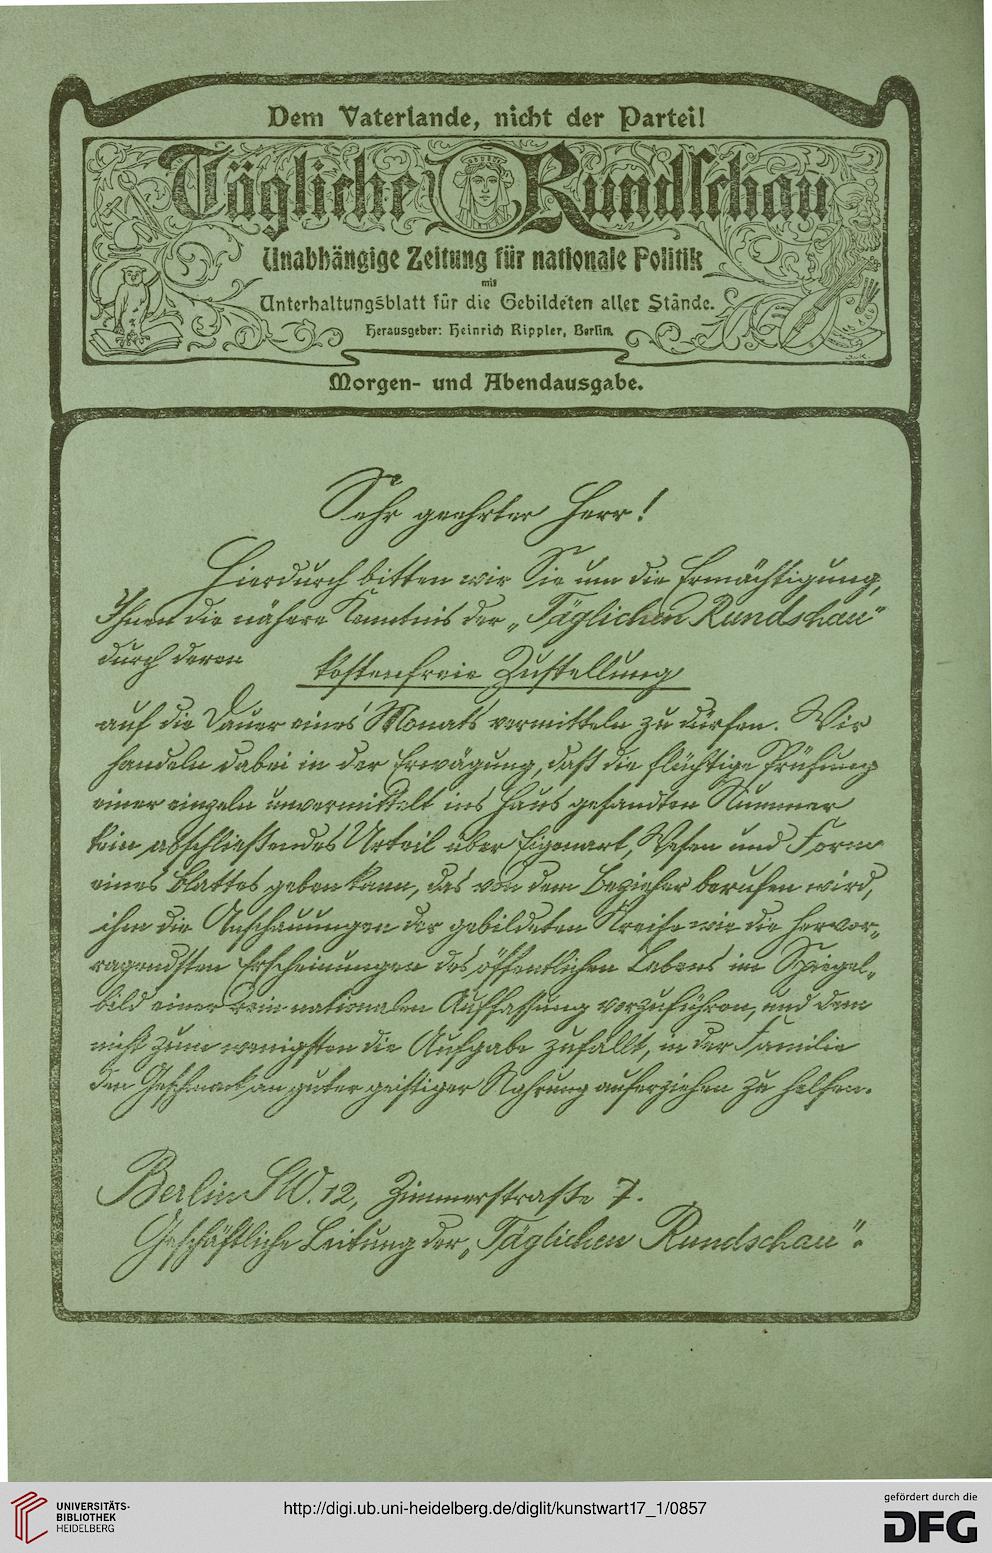 Dem Vaterlande, nicht der Partei!
Tägliche Rundschau
Unabhängige Zeitung für nationale Politik
mit
Unterhaltungsblatt für die Gebildeten aller Stände.
Herausgeber: Heinrich Rippler, Berlin.
Morgen- und Abendausgabe.
Sehr geehrter Herr!
Hierdurch bitten wir Sie um die Ermächtigung,
Ihnen die nähere Kenntnis der „Täglichen Rundschau"
durch deren kostenfreie Zustellung
auf die Dauer eines Monats vermitteln zu dürfen. Wir
handeln dabei in der Erwägung, daß die flüchtige Prüfung
einer einzeln unvermittelt ins Haus gesandten Nummer
kein abschließendes Urteil über Eigenart, Wesen und Form
eines Blattes geben kann, das von dem Bezieher berufen wird,
ihm die Anschauungen der gebildeten Kreise wie die hervor-
ragendsten Erscheinungen des öffentlichen Lebens im Spiegel-
bild einer rein nationalen Auffassung vorzuführen, und dem
nicht zum wenigsten die Aufgabe zufällt, in der Familie
den Geschmack an guter geistiger Nahrung auferziehen zu helfen.
Berlin SW. 12, Zimmerstraße 7.
Geschäftliche Leitung der „Täglichen Rundschau".
UNIVERSITÄTS-
BIBLIOTHEK
HEIDELBERG
http://digi.ub.uni-heidelberg.de/diglit/kunstwart17_1/0857
gefördert durch die
DFG